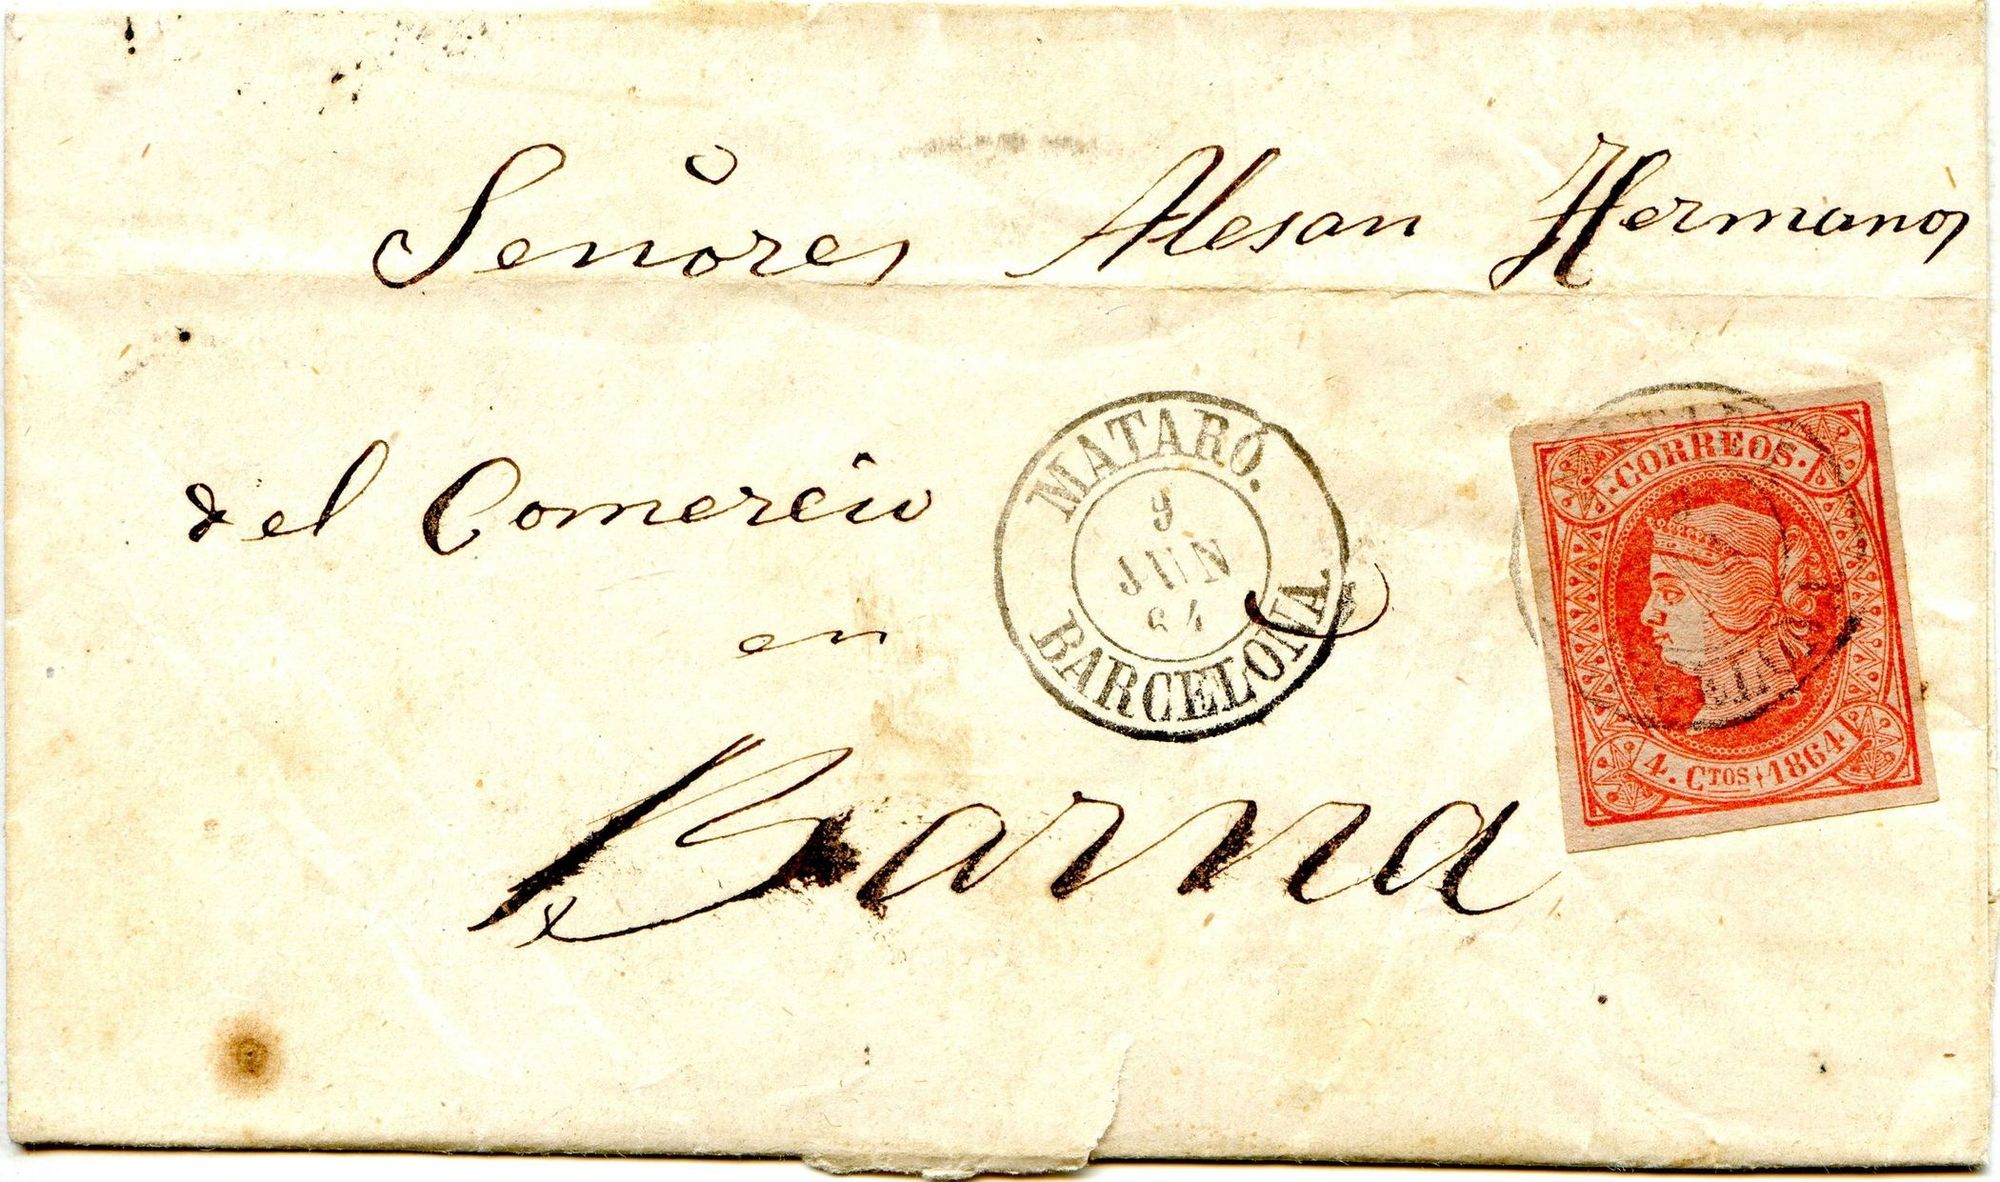 Señores Alesan Hermanos
del Comercio
en
Barna
MATARÓ.
9
JUN
64
BARCELONA.
·CORREOS·
4. CTOS 1864·